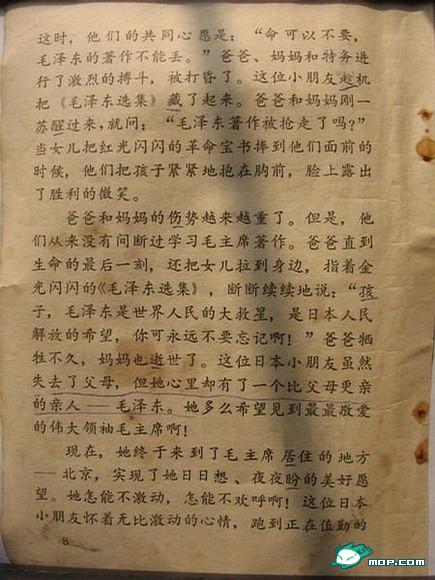 这时，他们的共同心愿是：“命可以不要，
毛泽东的著作不能丢。”爸爸、妈妈和特务进
行了激烈的搏斗，被打昏了。这位小朋友趁机
把《毛泽东选集》藏了起来。爸爸和妈妈刚一
苏醒过来，就问：“毛泽东著作被抢走了吗？”
当女儿把红光闪闪的革命宝书捧到他们面前的
时候，他们把孩子紧紧地抱在胸前，脸上露出
了胜利的微笑。
爸爸和妈妈的伤势越来越重了。但是，他
们从来没有间断过学习毛主席著作。爸爸直到
生命的最后一刻，还把女儿拉到身边，指着金
光闪闪的《毛泽东选集》，断断续续地说：“孩
子，毛泽东是世界人民的大救星，是日本人民
解放的希望，你可永远不要忘记啊！”爸爸牺
牲不久，妈妈也逝世了。这位日本小朋友虽然
失去了父母，但她心里却有了一个比父母更亲
的亲人——毛泽东。她多么希望见到最最敬爱
的伟大领袖毛主席啊！
现在，她终于来到了毛主席居住的地方
——北京，实现了她日日想、夜夜盼的美好愿
望。她怎能不激动，怎能不欢呼啊！这位日本
小朋友怀着无比激动的心情，跑到正在值勤的
8
MOP.COM